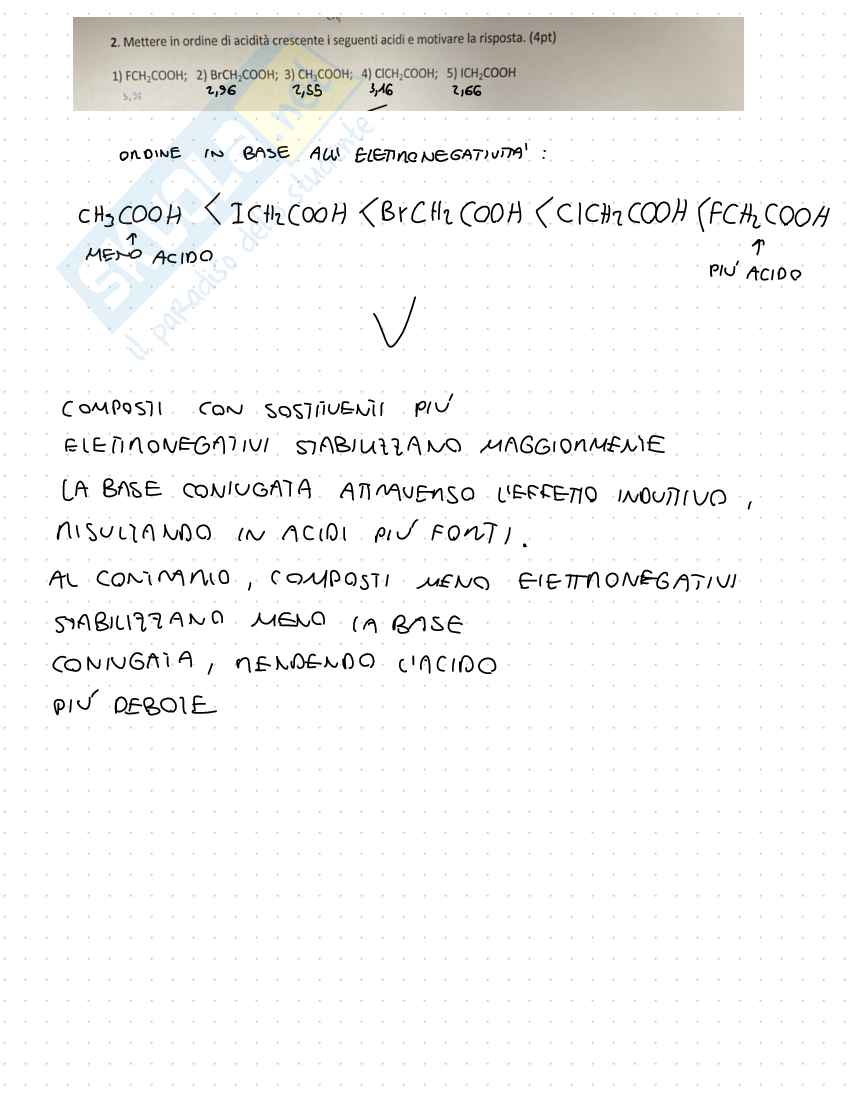 2. Mettere in ordine di acidità crescente i seguenti acidi e motivare la risposta. (4pt)
1) FCH₂COOH; 2) BrCH₂COOH; 3) CH₃COOH; 4) ClCH₂COOH; 5) ICH₂COOH
2,96 2,55 3,16 2,66
ORDINE IN BASE ALL' ELETTRONEGATIVITA' :
CH3COOH < ICH2COOH < BrCH2COOH < ClCH2COOH < FCH2COOH
↑ ↑
MENO ACIDO PIU' ACIDO
COMPOSTI CON SOSTITUENTI PIU'
ELETTRONEGATIVI STABILIZZANO MAGGIORMENTE
LA BASE CONIUGATA ATTRAVERSO L'EFFETTO INDUTTIVO,
RISULTANDO IN ACIDI PIU' FORTI.
AL CONTRARIO, COMPOSTI MENO ELETTRONEGATIVI
STABILIZZANO MENO LA BASE
CONIUGATA, RENDENDO L'ACIDO
PIU' DEBOLE
SKUOLA.net
il paradiso dello studente